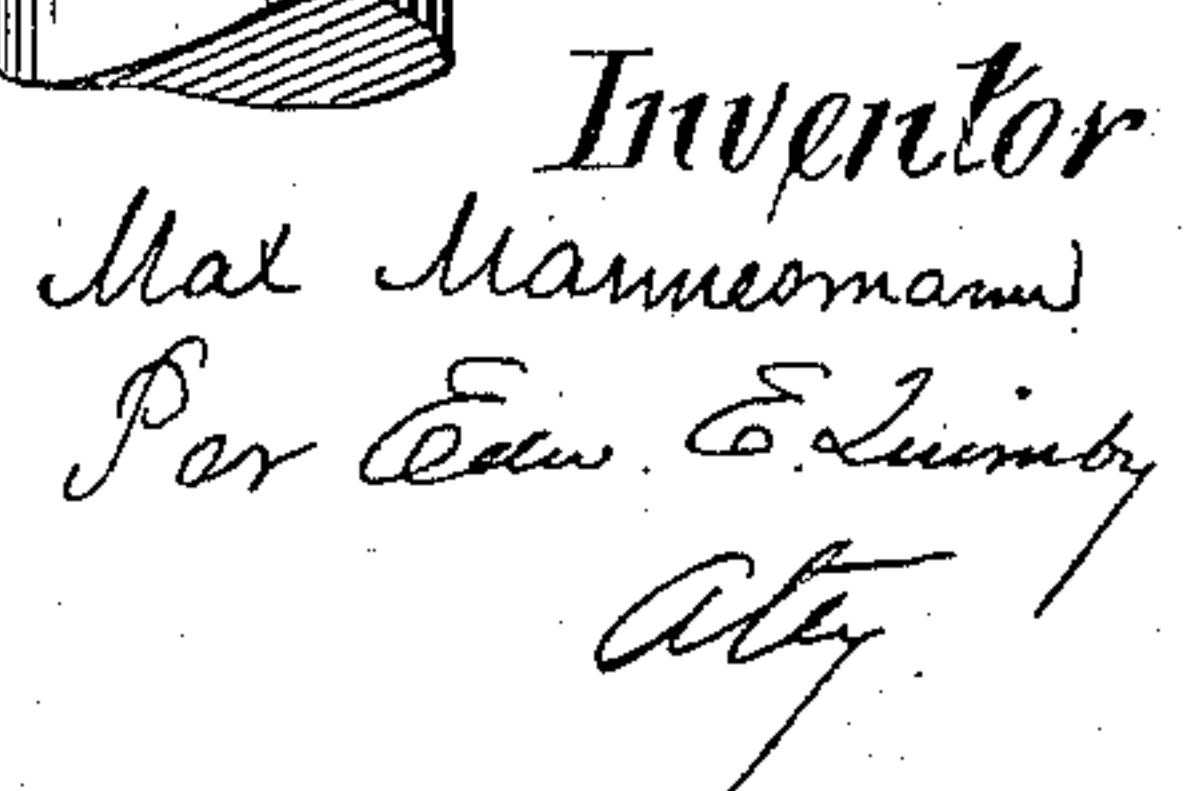 Inventor
Max Mannesmann
Per Edw. E. Quimby
Atty